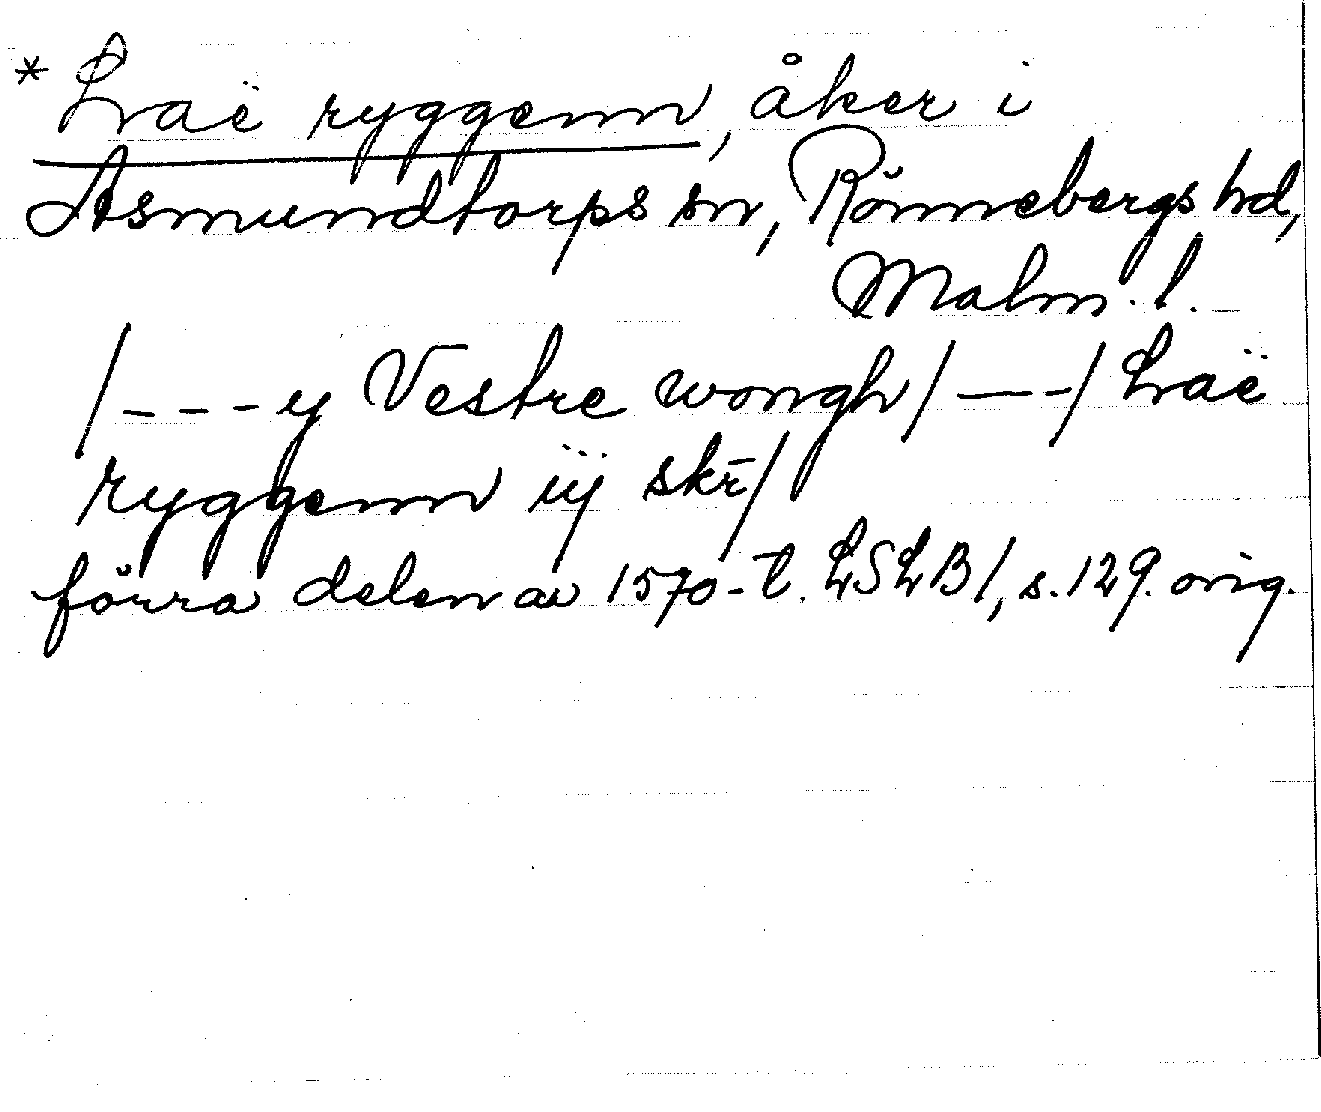 * Laë ryggenn, åker i
Asmundtorps sn, Rönnebergs hd,
Malm. l.
/---y Vestre wongh/ ---/ Laë
ryggenn iij skr̄/
förra delen av 1570-t. LSLB/, s. 129. orig.